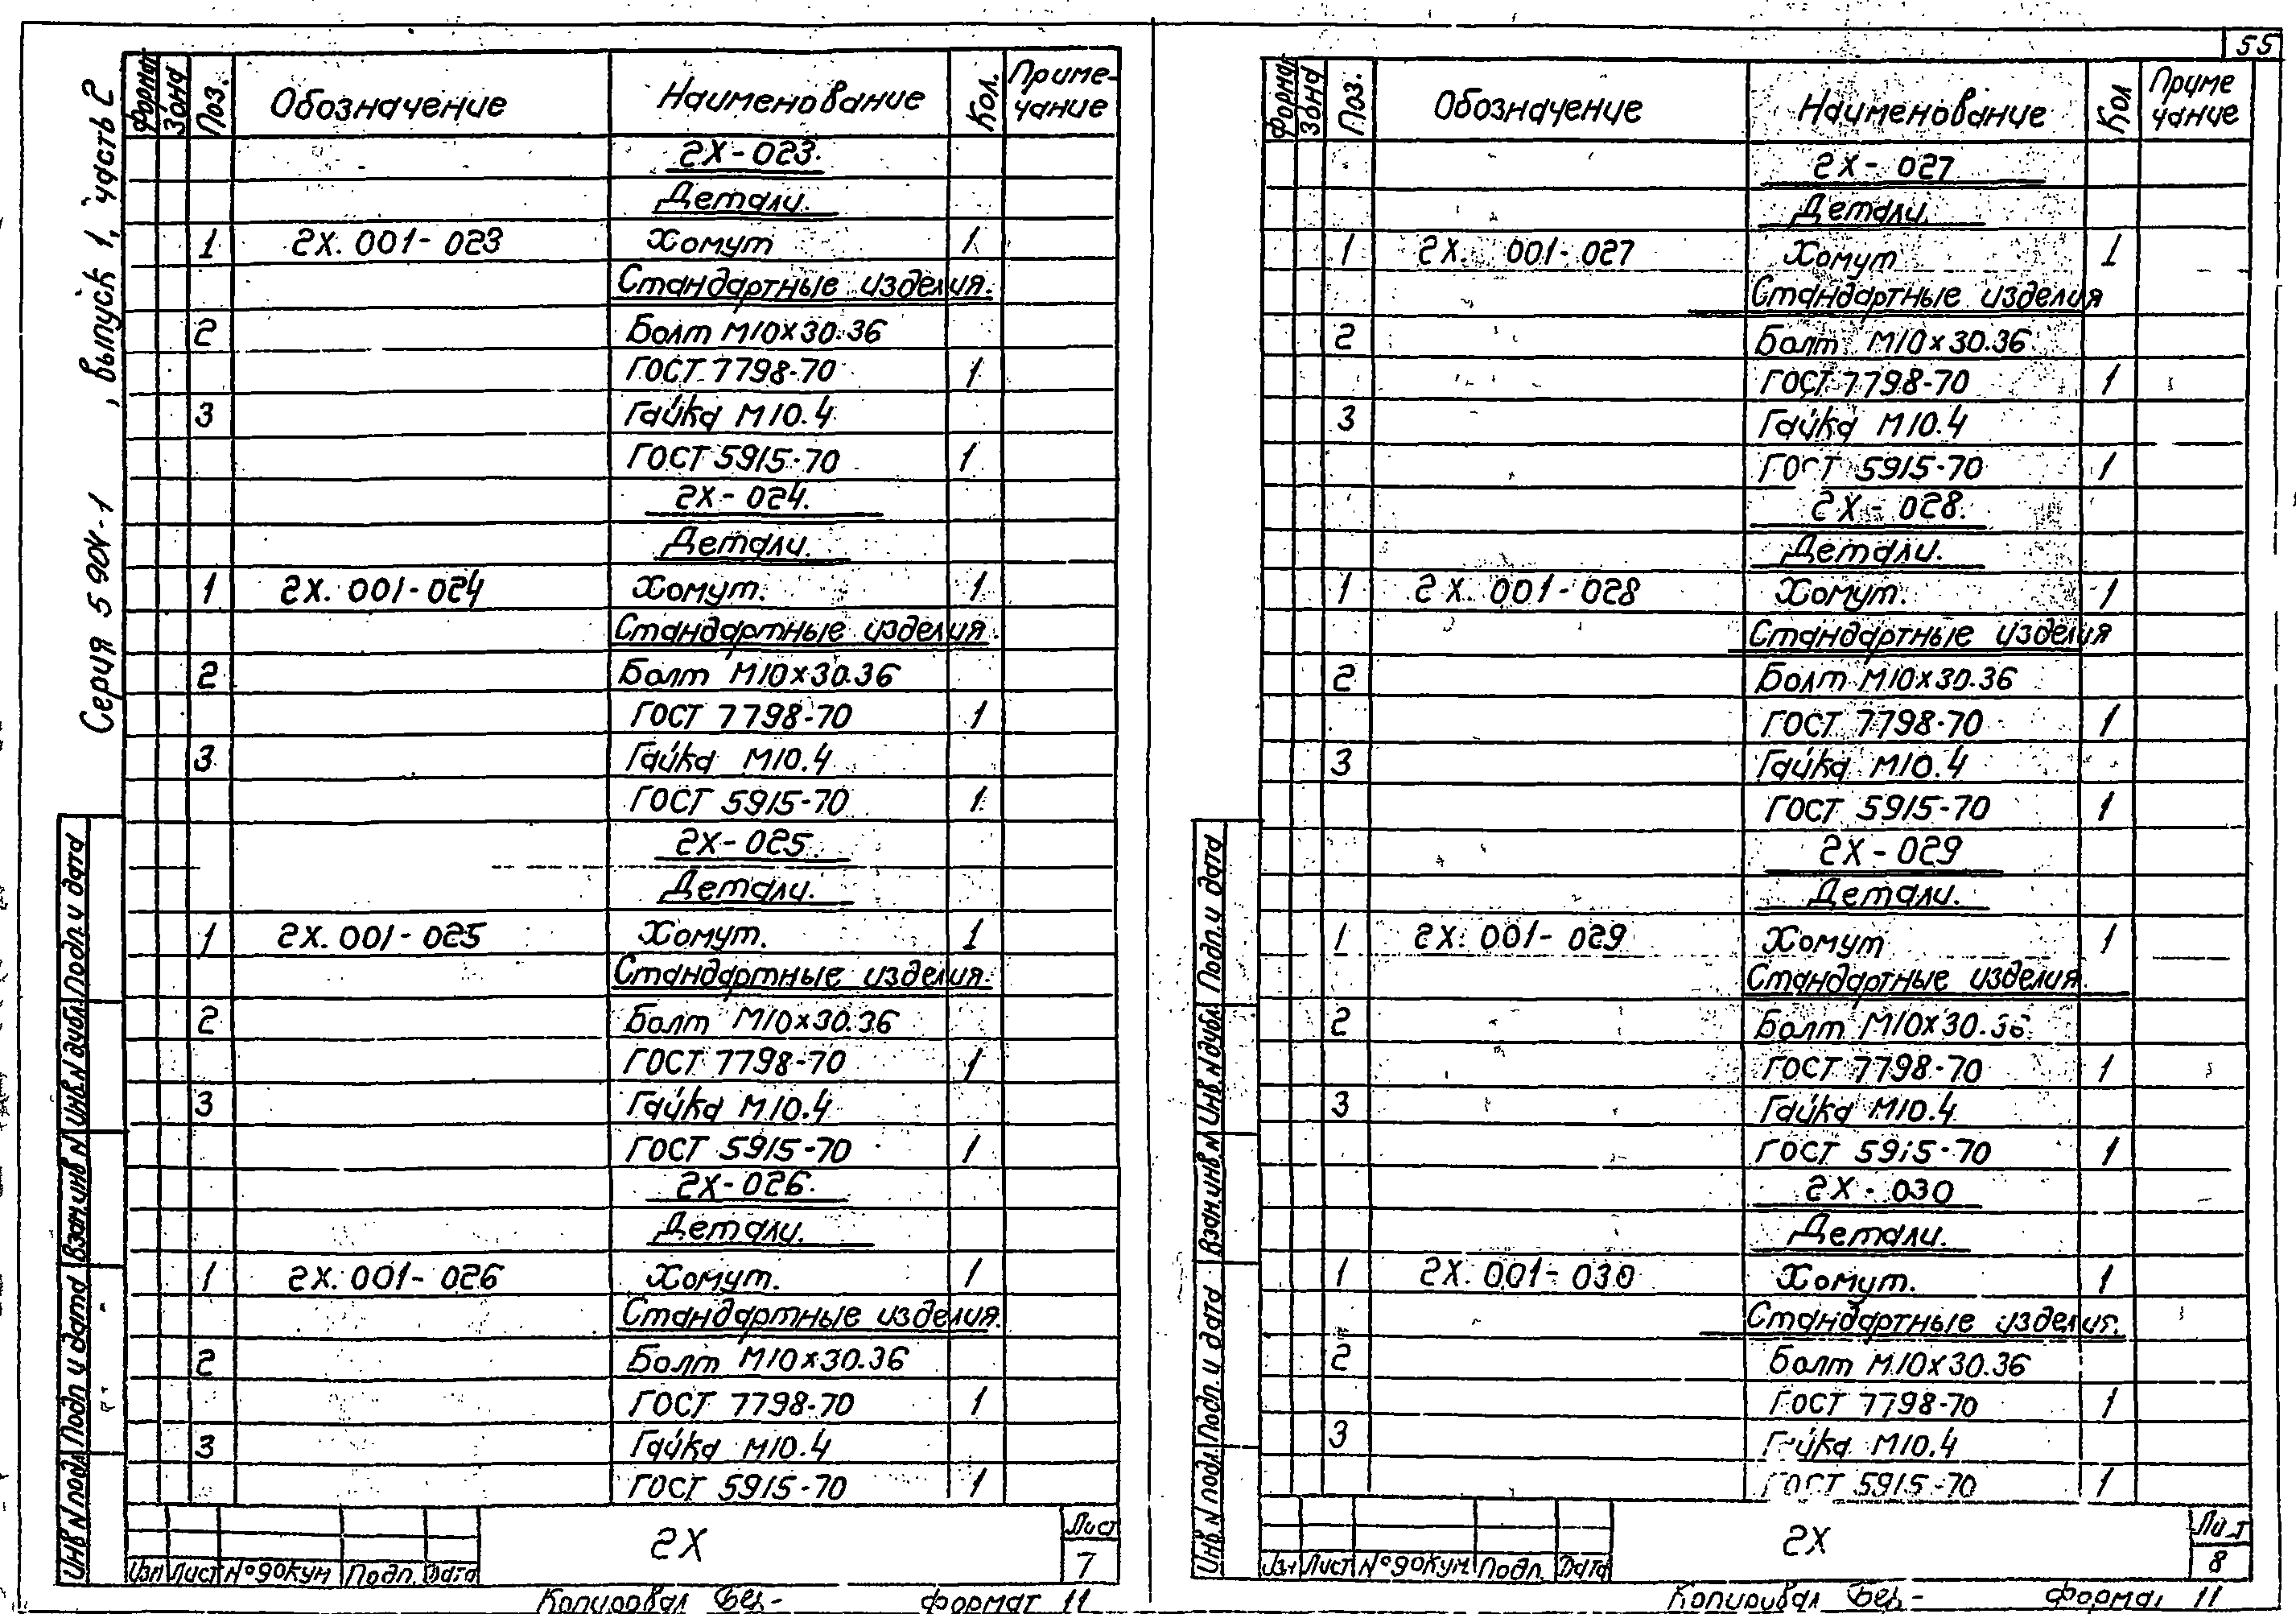 55
Серия 5 904-1 , выпуск 1, часть 2
Формат Зона Поз. Обозначение Наименование Кол. Приме-
чание
2Х-023.
Детали.
1 2Х. 001-023 Хомут 1
Стандартные изделия.
2 Болт М10х30.36
ГОСТ 7798-70 1
3 Гайка М10.4
ГОСТ 5915-70 1
2Х-024.
Детали.
1 2Х. 001-024 Хомут. 1
Стандартные изделия.
2 Болт М10х30.36
ГОСТ 7798-70 1
3 Гайка М10.4
ГОСТ 5915-70 1
2Х-025.
Детали.
1 2Х. 001-025 Хомут. 1
Стандартные изделия.
2 Болт М10х30.36
ГОСТ 7798-70 1
3 Гайка М10.4
ГОСТ 5915-70 1
2Х-026.
Детали.
1 2Х. 001-026 Хомут. 1
Стандартные изделия.
2 Болт М10х30.36
ГОСТ 7798-70 1
3 Гайка М10.4
ГОСТ 5915-70 1
Инв N подл. Подп и дата Взам.инв N Инв N дубл. Подп. и дата
Изм Лист N° докум Подп. Дата
2Х
Лист
7
Копировал формат 11
Формат Зона Поз. Обозначение Наименование Кол Приме
чание
2Х-027
Детали.
1 2Х. 001-027 Хомут 1
Стандартные изделия
2 Болт М10х30.36
ГОСТ 7798-70 1
3 Гайка М10.4
ГОСТ 5915-70 1
2Х-028.
Детали.
1 2Х 001-028 Хомут. 1
Стандартные изделия
2 Болт М10х30.36
ГОСТ 7798-70 1
3 Гайка М10.4
ГОСТ 5915-70 1
2Х-029
Детали.
1 2Х. 001-029 Хомут 1
Стандартные изделия
2 Болт М10х30.36
ГОСТ 7798-70 1
3 Гайка М10.4
ГОСТ 5915-70 1
2Х-030
Детали.
1 2Х. 001-030 Хомут. 1
Стандартные изделия.
2 Болт М10х30.36
ГОСТ 7798-70 1
3 Гайка М10.4
ГОСТ 5915-70 1
Инв. N подл. Подп. и дата Взам.инв N Инв N дубл. Подп. и дата
Изм Лист N° докум. Подп. Дата
2Х
Лист
8
Копировал формат 11